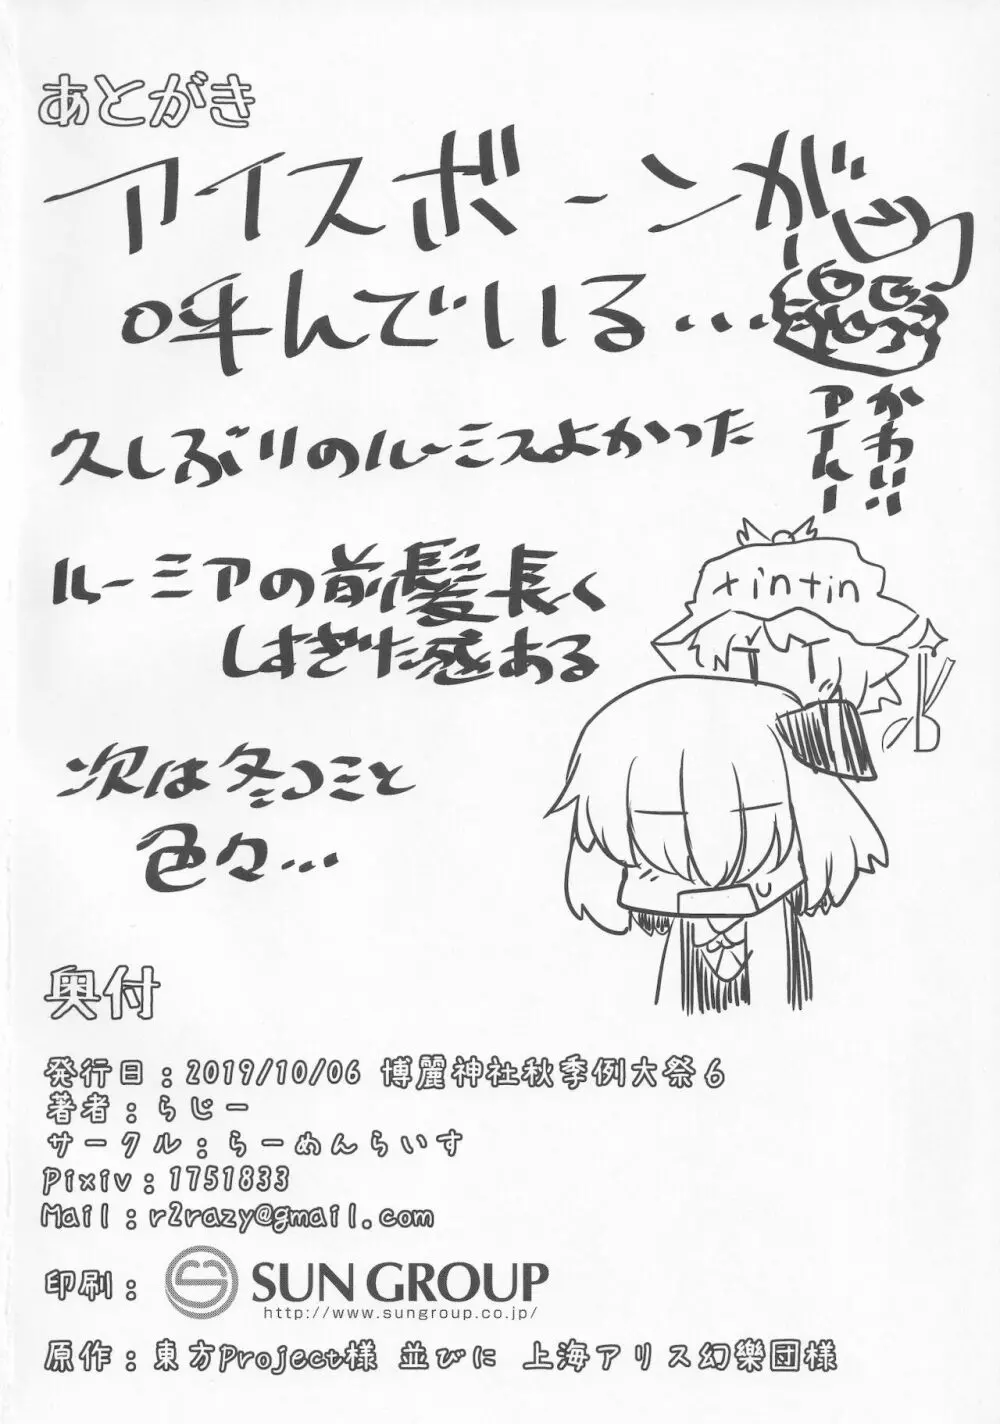 あとがき
アイスボーンが
呼んでいる…
かわいい
アイルー
久しぶりのルーミスよかった
ルーミアの前髪長く
しすぎた感ある
tintin
次は冬コミと
色々…
奥付
発行日:2019/10/06 博麗神社秋季例大祭6
著者:らじー
サークル:らーめんらいす
Pixiv:1751833
Mail:r2razy@gmail.com
印刷: SUN GROUP
http://www.sungroup.co.jp/
原作:東方Project様 並びに 上海アリス幻樂団様